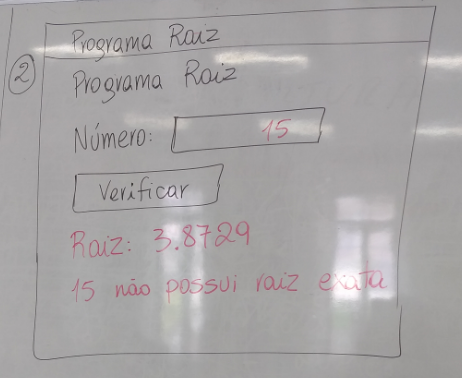 2
Programa Raiz
Programa Raiz
Número: 15
Verificar
Raiz: 3.8729
15 não possui raiz exata